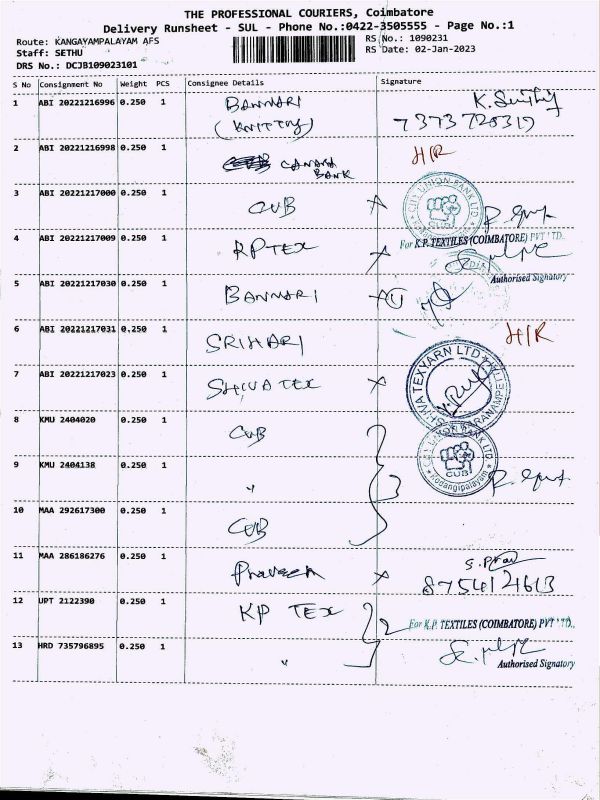 THE PROFESSIONAL COURIERS, Coimbatore
Delivery Runsheet - SUL - Phone No.:0422-3505555 - Page No.:1
Route: KANGAYAMPALAYAM AFS
RS No.: 1090231
Staff: SETHU
RS Date: 02-Jan-2023
DRS No.: DCJB109023101
S No Consignment No Weight PCS Consignee Details Signature
1 ABI 20221216996 0.250 1 BANNARI
(KNITTING)
7373728317
2 ABI 20221216998 0.250 1 CANARA BANK H/R
3 ABI 20221217000 0.250 1 CUB
CITY UNION BANK LTD
CUB
4 ABI 20221217009 0.250 1 RPTEX
For K.P. TEXTILES (COIMBATORE) PVT LTD.
Authorised Signatory
5 ABI 20221217030 0.250 1 BANNARI
6 ABI 20221217031 0.250 1 SRIHARI H/R
7 ABI 20221217023 0.250 1 SHIVA TEX
SHIVA TEXYARN LTD
8 KMU 2404020 0.250 1 CUB
CITY UNION BANK LTD
CUB
Kodangipalayam
9 KMU 2404138 0.250 1 "
10 MAA 292617300 0.250 1 CUB
3
11 MAA 286186276 0.250 1 Praveen
8754121613
12 UPT 2122390 0.250 1 KP TEX
2
For K.P. TEXTILES (COIMBATORE) PVT LTD.
13 HRD 735796895 0.250 1 "
Authorised Signatory